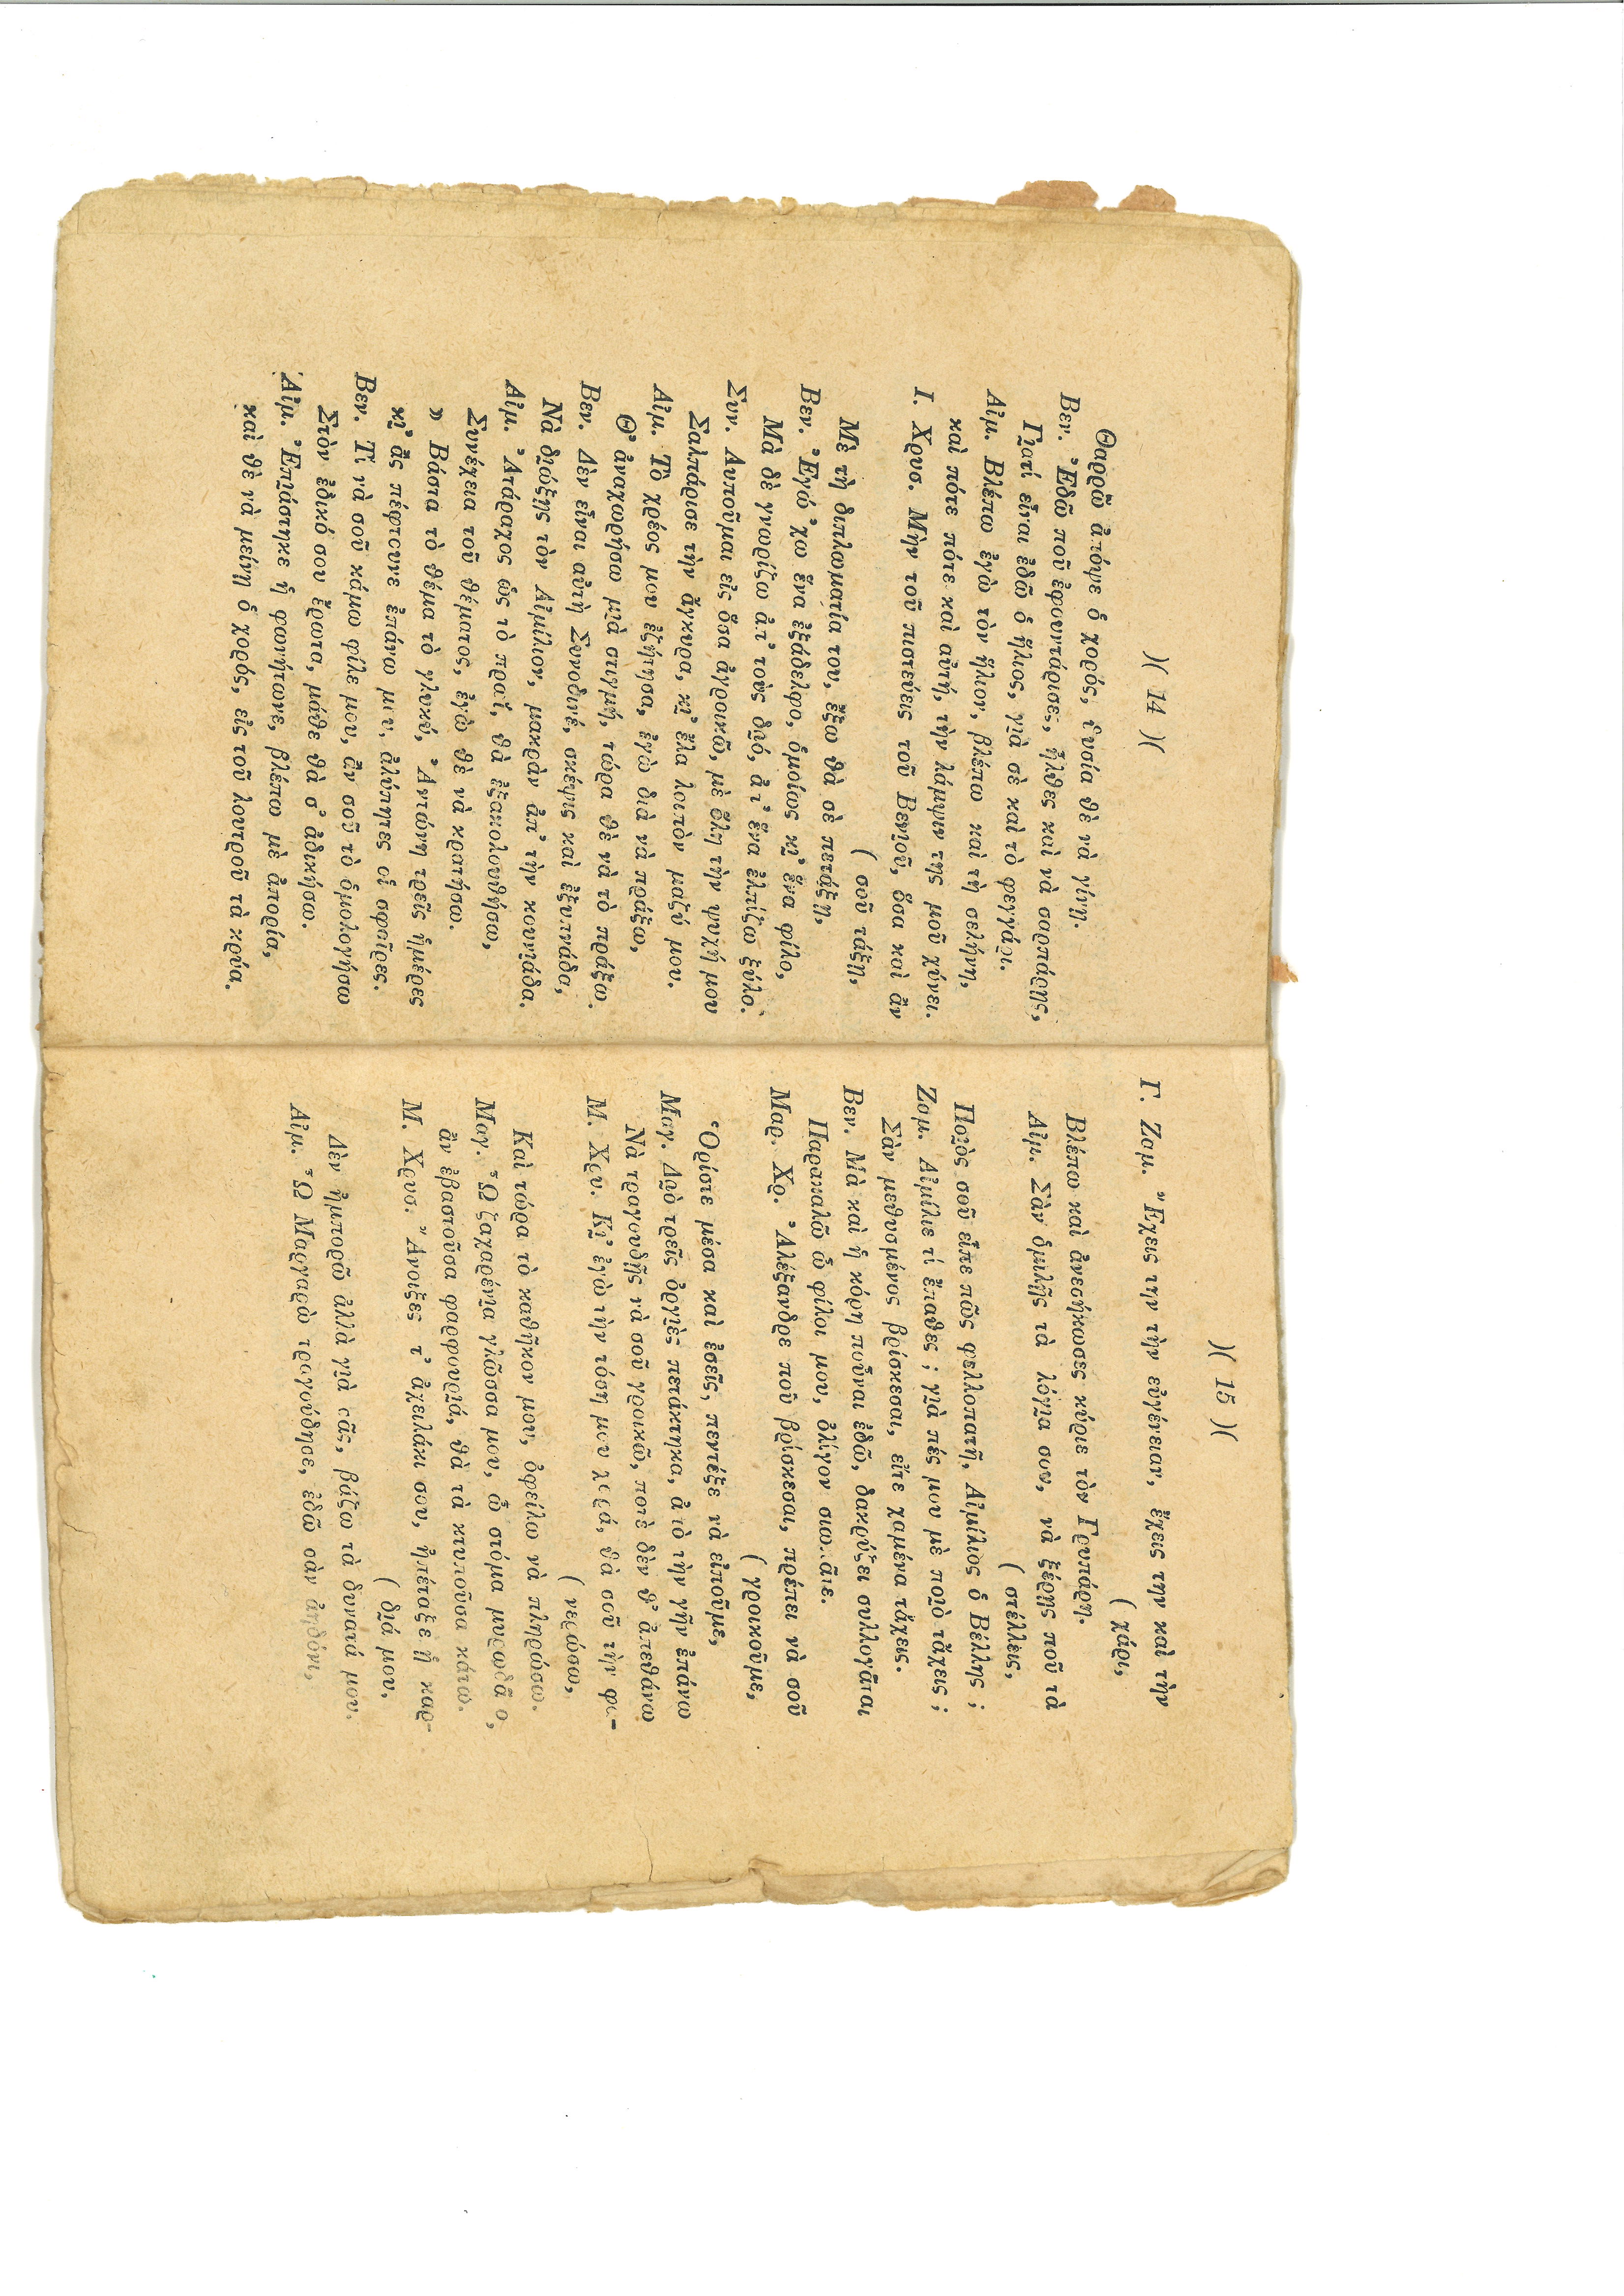 )( 14 )(
Θαρρῶ ἀπόψε ὁ χορός, θυσία θὲ νὰ γίνῃ.
Βεν. Ἐδῶ ποῦ ἐφουντάρισες, ἦλθες καὶ νὰ σαρπάρῃς,
Γιατί εἶναι ἐδῶ ὁ ἥλιος, γιὰ σὲ καὶ τὸ φεγγάρι.
Αἰμ. Βλέπω ἐγὼ τὸν ἥλιον, βλέπω καὶ τὴ σελήνη,
καὶ πότε πότε καὶ αὐτή, τὴν λάμψιν της μοῦ χύνει.
Ι. Χρυσ. Μὴν τοῦ πιστεύεις τοῦ Βενιοῦ, ὅσα καὶ ἂν
( σοῦ τάξῃ,
Μὲ τὴ διπλωματία του, ἔξω θὰ σὲ πετάξῃ,
Βεν. Ἐγώ 'χω ἕνα ἐξάδελφο, ὁμοίως κι' ἕνα φίλο,
Μὰ δὲ γνωρίζω ἀπ' τοὺς δυό, ἀπ' ἕνα ἐλπίζω ξύλο.
Συν. Λυποῦμαι εἰς ὅσα ἀγροικῶ, μὲ ὅλη τὴν ψυχή μου
Σαλπάρισε τὴν ἄγκυρα, κι' ἔλα λοιπὸν μαζύ μου.
Αἰμ. Τὸ χρέος μου ἐζήτησα, ἐγὼ διὰ νὰ πράξω,
Θ' ἀναχωρήσω μιὰ στιγμή, τώρα θὲ νὰ τὸ πράξω.
Βεν. Δὲν εἶναι αὐτὴ Συνοδινέ, σκέψις καὶ ἐξυπνάδα,
Νὰ διώξῃς τὸν Αἰμίλιον, μακρὰν ἀπ' τὴν κουνιάδα.
Αἰμ. Ἀτάραχος ὡς τὸ πρωΐ, θὰ ἐξακολουθήσω,
Συνέχεια τοῦ θέματος, ἐγὼ θὲ νὰ κρατήσω.
» Βάστα τὸ θέμα τὸ γλυκύ, Ἀντώνη τρεῖς ἡμέρες
κι' ἂς πέφτουνε ἐπάνω μου, ἀλύπητες οἱ σφαῖρες.
Βεν. Τί νὰ σοῦ κάμω φίλε μου, ἂν σοῦ τὸ ὁμολογήσω
Στὸν ἐδικό σου ἔρωτα, μάθε θὰ σ' ἀδικήσω.
Αἰμ. Ἐπιάστηκε ἡ φωνήτωνε, βλέπω μὲ ἀπορία,
καὶ θὲ νὰ μείνῃ ὁ χορός, εἰς τοῦ λουτροῦ τὰ κρύα.
)( 15 )(
Γ. Ζαμ. Ἔχεις την τὴν εὐγένειαν, ἔχεις την καὶ τὴν
( χάρι,
Βλέπω καὶ ἀνεσήκωσες κύριε τὸν Γρυπάρη.
Αἰμ. Σὰν ὁμιλῇς τὰ λόγια σου, νὰ ξέρῃς ποῦ τὰ
( στέλλεις,
Ποιὸς σοῦ εἶπε πῶς φελλοπατῆ, Αἰμίλιος ὁ Βέλλης ;
Ζαμ. Αἰμίλιε τί ἔπαθες ; γιὰ πές μου μὲ ποιὸ τἄχεις ;
Σὰν μεθυσμένος βρίσκεσαι, εἴτε χαμένα τἄχεις.
Βεν. Μὰ καὶ ἡ κόρη ποῦναι ἐδῶ, δακρύζει συλλογᾶται
Παρακαλῶ ὦ φίλοι μου, ὀλίγον σιω..ᾶτε.
Μαρ. Χρ. Ἀλέξανδρε ποῦ βρίσκεσαι, πρέπει νὰ σοῦ
( γροικοῦμε,
Ὁρίστε μέσα καὶ ἐσεῖς, πεντέξε νὰ εἰποῦμε,
Μαγ. Δυὸ τρεῖς ὀργιὲς πετάκτηκα, ἀπὸ τὴν γῆν ἐπάνω
Νὰ τραγουδῇς νὰ σοῦ γροικῶ, ποτὲ δὲν θ' ἀπεθάνω
Μ. Χρυ. Κι' ἐγὼ τὴν τόση μου χαρά, θὰ σοῦ τὴν φα-
( νερώσω,
Καὶ τώρα τὸ καθῆκον μου, ὀφείλω νὰ πληρώσω.
Μαγ. Ὦ ζαχαρένια γλῶσσα μου, ὦ στόμα μυρωδᾶ ο,
ἂν ἐβαστοῦσα φαρφουριά, θὰ τὰ κτυποῦσα κάτω.
Μ. Χρυσ. Ἄνοιξες τ' ἀχειλάκι σου, ἠπέταξε ἡ καρ-
( διά μου,
Δὲν ἠμπορῶ ἀλλὰ γιὰ σᾶς, βάζω τὰ δυνατά μου.
Αἰμ. Ὦ Μαργαρὼ τραγούδησε, ἐδῶ σὰν ἀηδόνι,